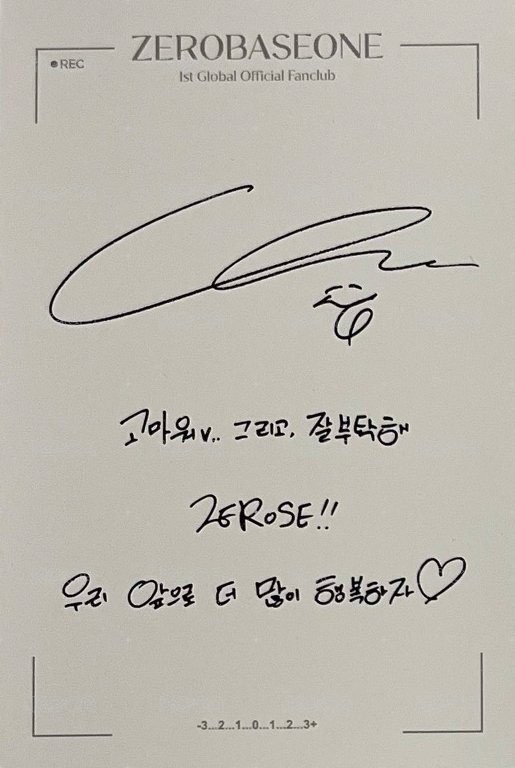 ZEROBASEONE
REC
1st Global Official Fanclub
고마워v.. 그리고, 잘부탁해
ZEROSE!!
우리 앞으로 더 많이 행복하자♡
-3...2...1...0...1...2...3+